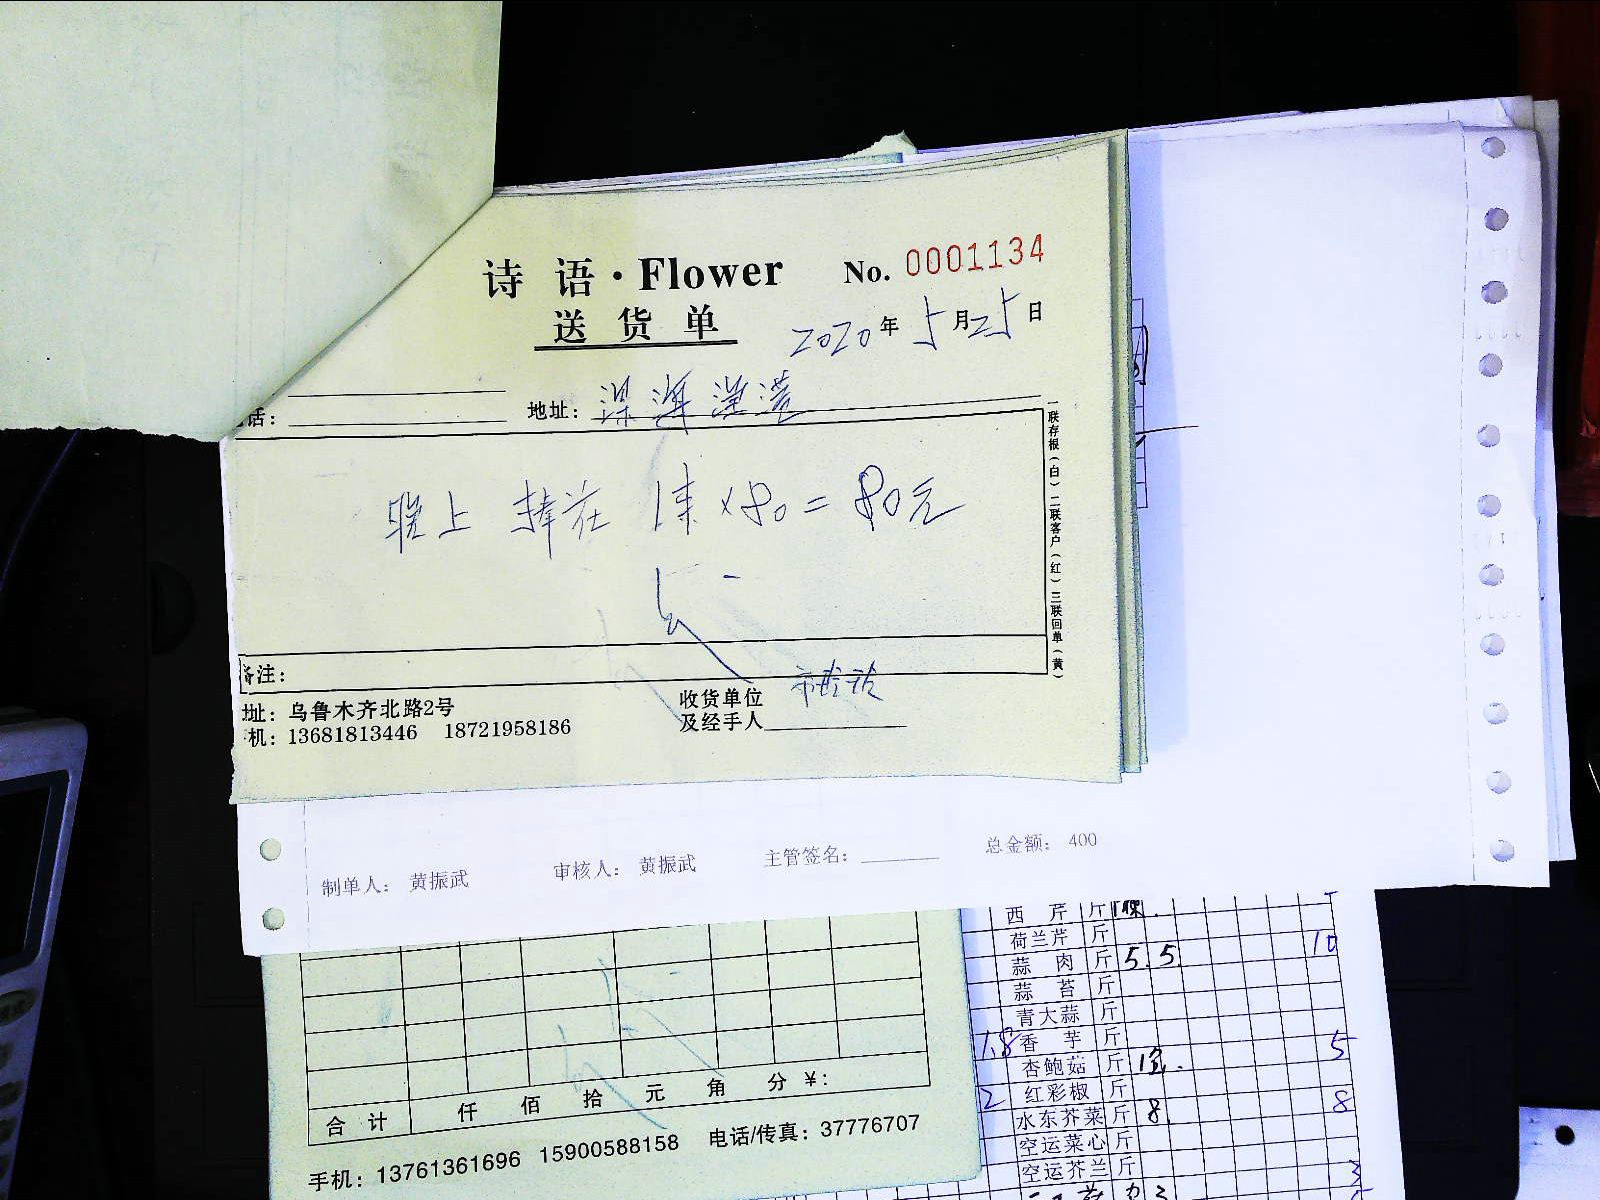 诗 语·Flower No. 0001134
送 货 单 2020年5月25日
话: 地址:
晚上 捧花 1束×80=80元
一联存根(白)二联客户(红)三联回单(黄)
备注:
地址: 乌鲁木齐北路2号
机: 13681813446 18721958186
收货单位
及经手人
制单人: 黄振武 审核人: 黄振武 主管签名: 总金额: 400
合 计 仟 佰 拾 元 角 分 ¥:
手机: 13761361696 15900588158 电话/传真: 37776707
西 芹 斤
荷兰芹 斤
蒜 肉 斤 5. 5. 10
蒜 苔 斤
青大蒜 斤
1.8 香 芋 斤 5
杏鲍菇 斤
2 红彩椒 斤
水东芥菜 斤 8 8
空运菜心 斤
空运芥兰 斤 3